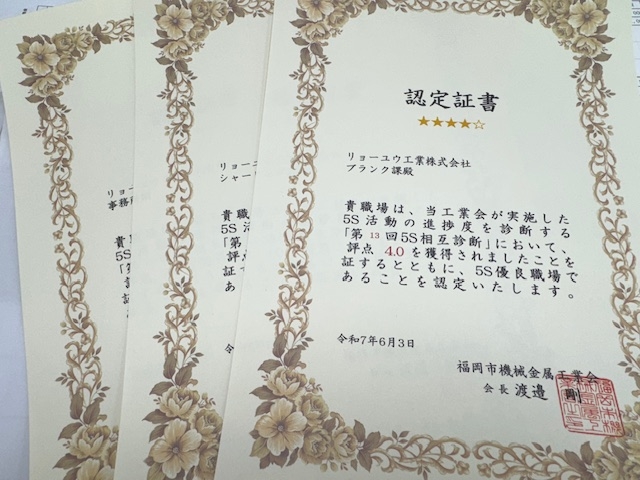 認定証書
★★★★☆
リョーユウ工業株式会社
ブランク課殿
貴職場は、当工業会が実施した
5S活動の進捗度を診断する
「第13回5S相互診断」において、
評点 4.0 を獲得されましたことを
証するとともに、5S優良職場で
あることを認定いたします。
令和7年6月3日
福岡市機械金属工業会
会長 渡邉 剛
リョーユ
シャー
貴職
5S
「第
評点
証
あ
令
リョー
事務
貴
5S
「第
評
証
あ